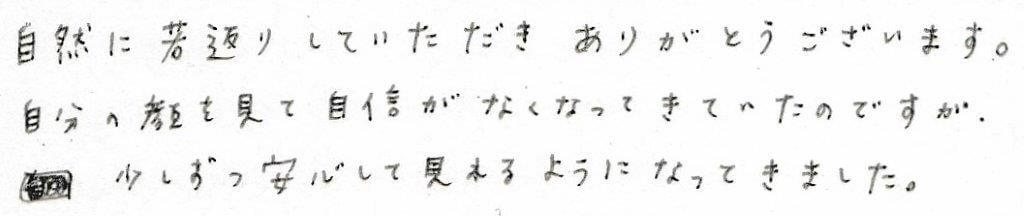 自然に若返りしていただき ありがとうございます。
自分の顔を見て自信がなくなってきていたのですが、
少しずつ安心して見れるようになってきました。